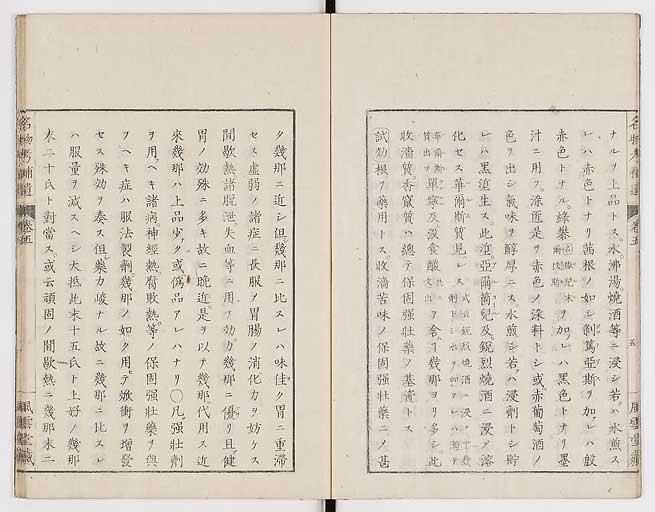 ナルヲ上品トス。水、沸湯燒酒等ニ浸シ若クハ水煎ス
レハ赤色トナリ茜根ノ如シ剝篤亞斯ヲ加フレハ殷
赤色トナル。綠礬ヲ加フレハ黑色トナリ墨
汁ニ用フ。漆匠是ヲ赤色ノ染料トシ或赤葡萄酒ノ
色ヲ出シ氣味ヲ醇厚ニス水煎シ若クハ浸劑トシ貯フ
レハ黑渣生ス。此渣亞爾箇兒及銳烈燒酒ニ浸メ溶
化セス華爾斯質見ハレス
單寧及沒食酸ヲ含ム幾那ヨリ多シ。此
收濇質香竄質ハ總テ保固强壯藥ノ基礎トス
試効根ヲ藥用トス。收濇苦味ノ保固强壯藥ニノ甚
タ幾那ニ近シ但幾那ニ比スレハ味佳ク胃ニ重滯
セス虛弱ノ諸症ニ長服ノ胃腸ノ消化力ヲ妨ケス
間歇熱諸脫泄失血等ニ用フ効力幾那ニ優リ且健
胃ノ効殊ニ多キ故ニ晩近是ヲ以テ幾那代用ス近
來幾那ハ上品少ク或僞品アレハナリ〇凡强壯劑
ヲ用フヘキ諸病神經熱腐敗熱等保固强壯藥ヲ與
フヘキ症ハ服法製劑幾那ノ如ク用テ焮衝ヲ增發
セス殊効ヲ奏ス但藥力峻ナル故ニ幾那ニ比スレ
ハ服量ヲ減スヘシ大抵此末十五氏ト上好ノ幾那
末二十氏ト對當ス。或云頑固ノ間歇熱ニ幾那末二
名物考補遺 卷五
五
風雲堂藏
名物考補遺 卷五
風雲堂藏